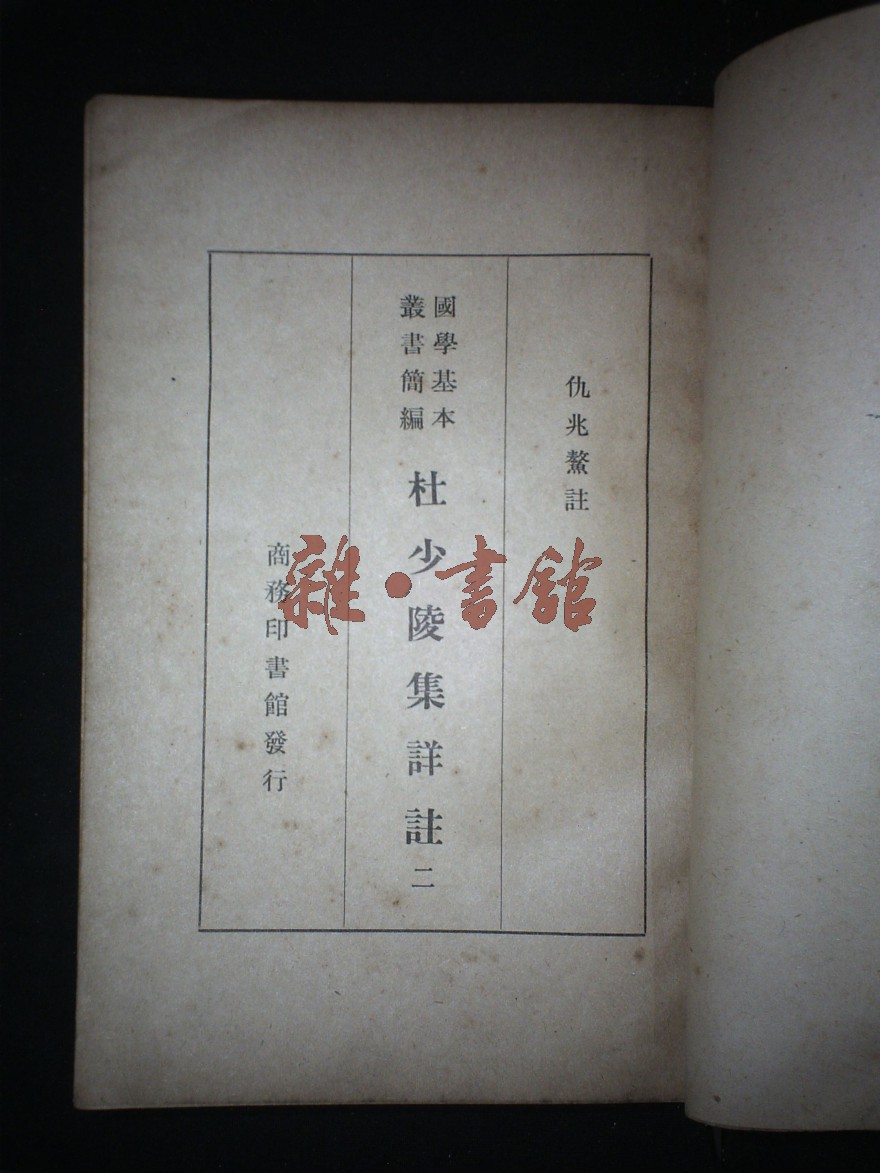 仇兆鰲註
國學基本
叢書簡編
杜少陵集詳註 二
商務印書館發行
雜·書館